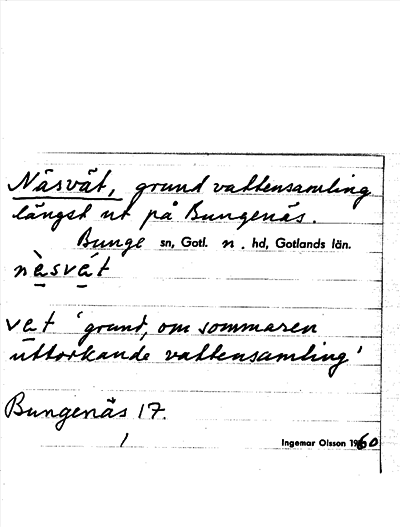 Näsvät, grund vattensamling
längst ut på Bungenäs.
Bunge sn, Gotl. n. hd, Gotlands län.
nàsvát
vat 'grund, om sommaren
uttorkande vattensamling'
Bungenäs 17.
1
Ingemar Olsson 1960